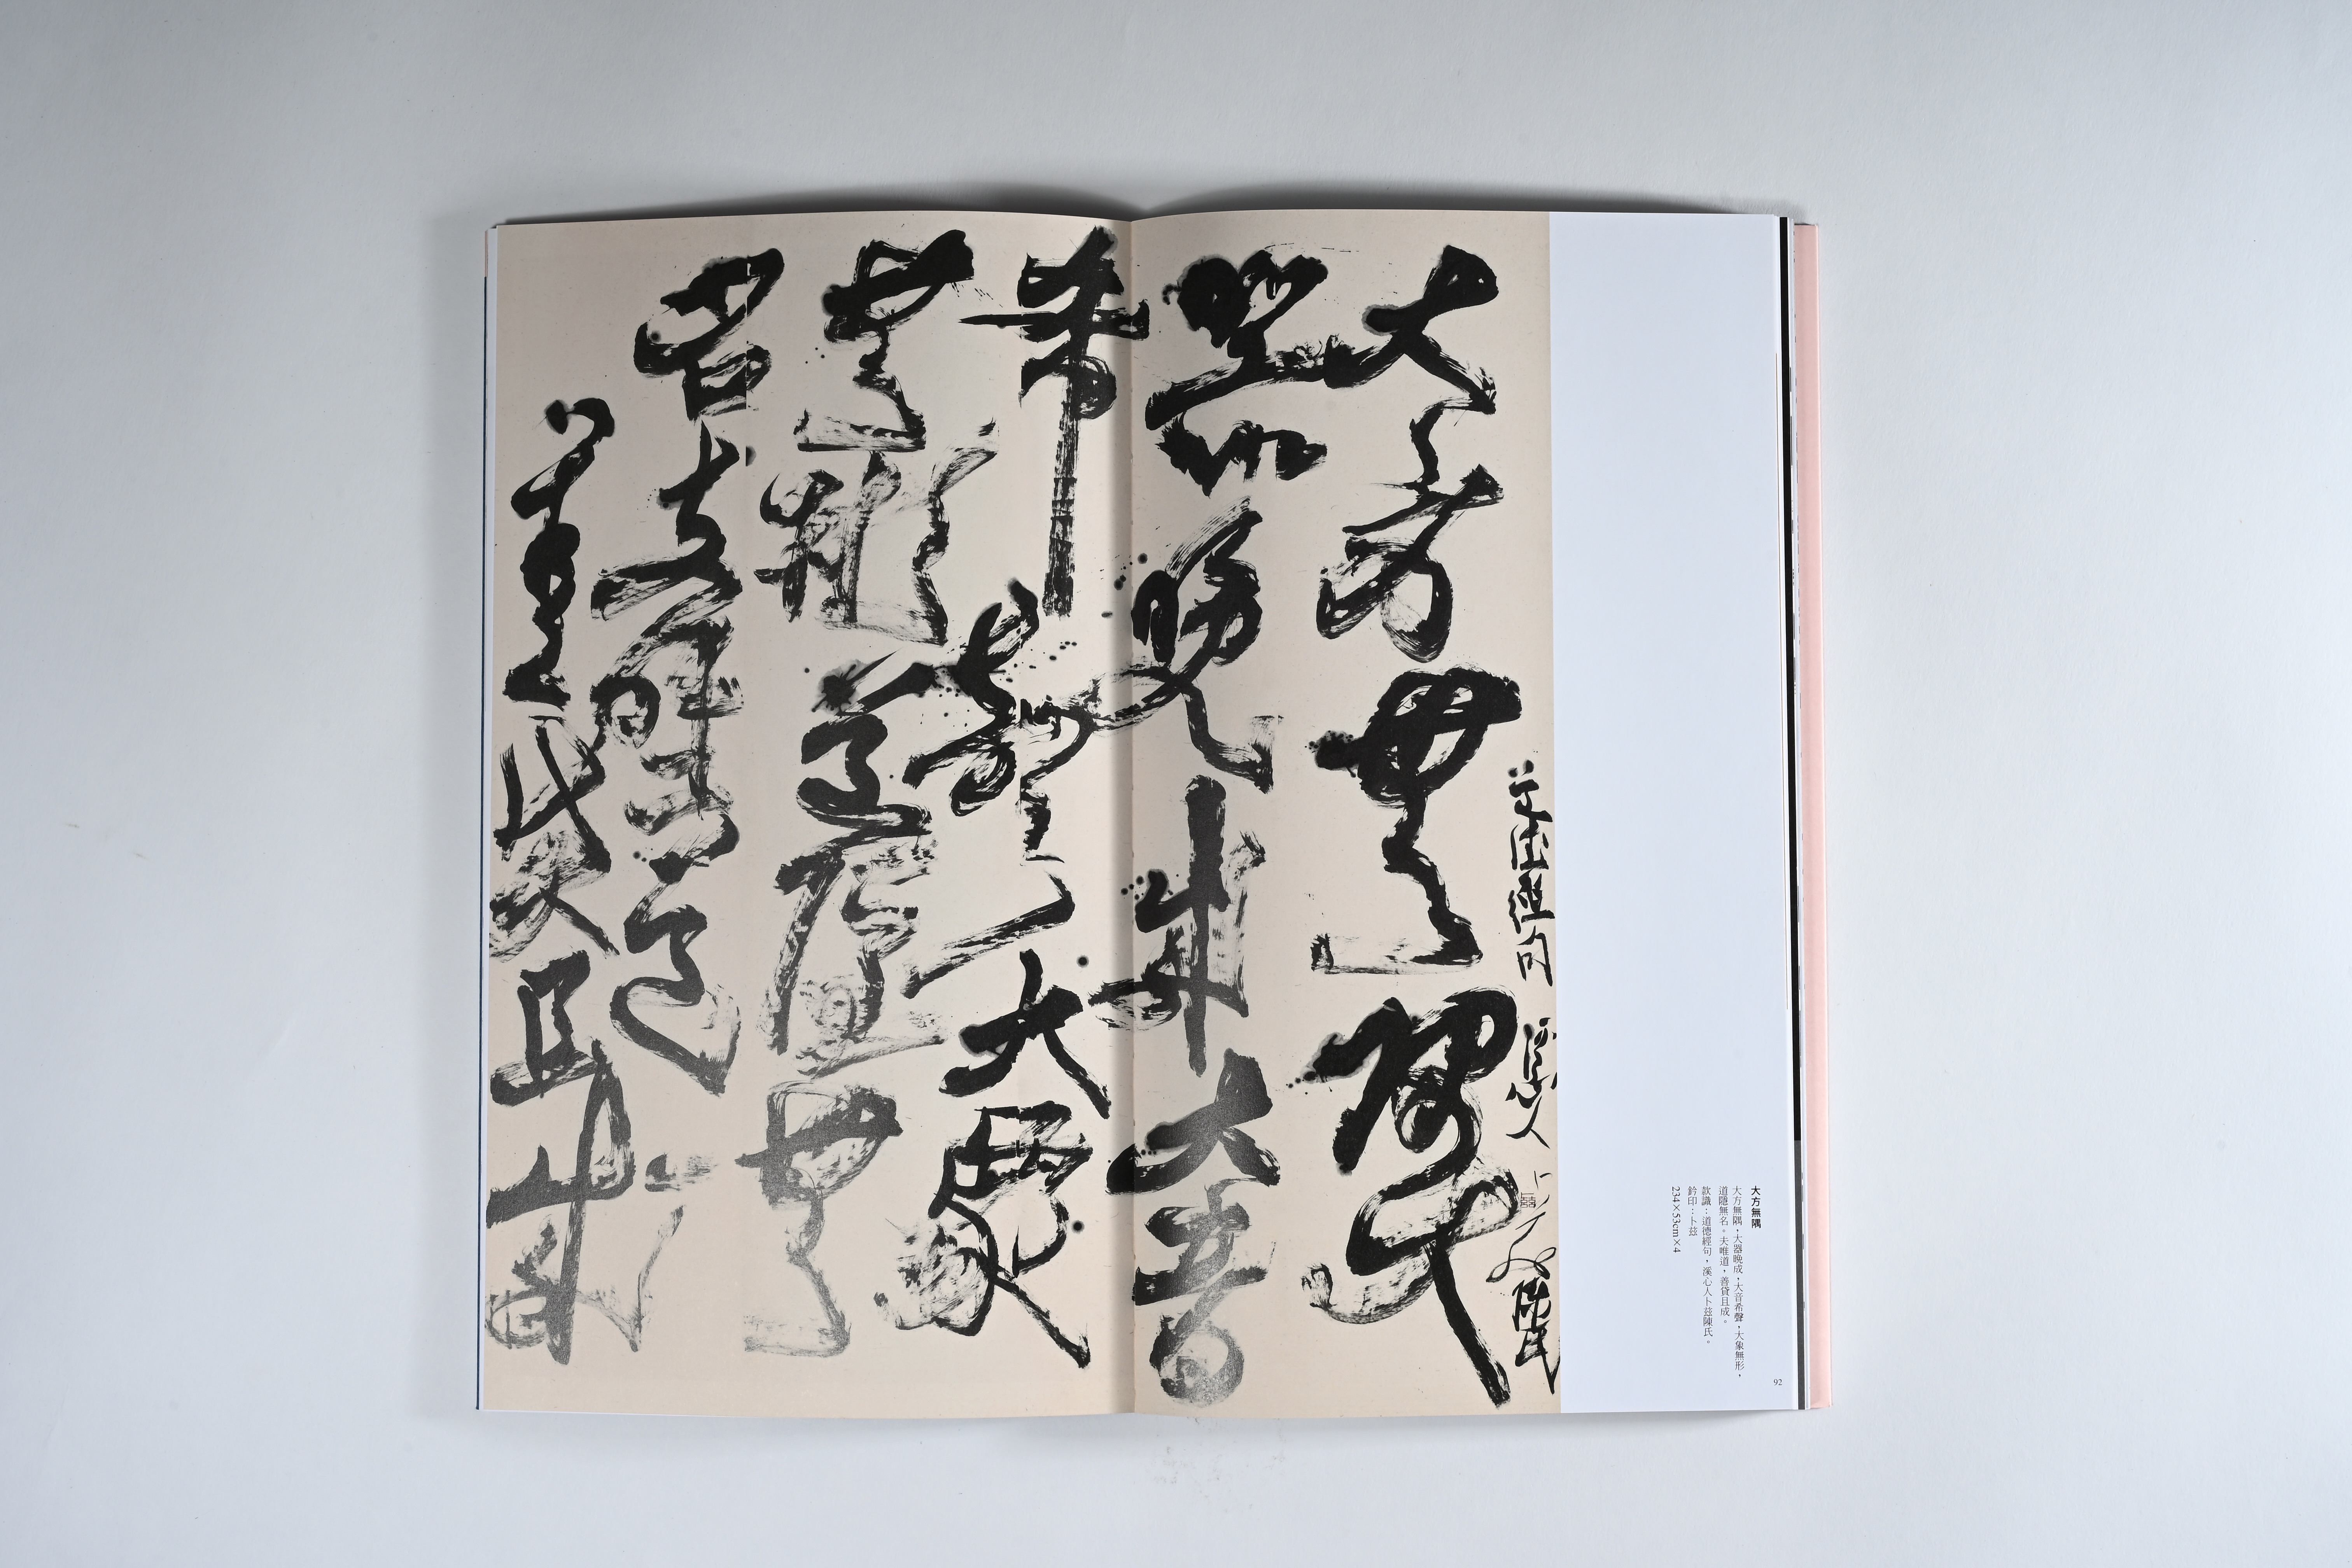 大方無隅
大方無隅，大器晚成，大音希聲，大象無形，
道隱無名。夫唯道，善貸且成。
款識：道德經句，溪心人卜茲陳氏。
鈐印：卜茲
234×53cm×4
92
道德經句 溪心人卜茲陳氏
大方無隅大
器晚成大音
希聲大象
無形道隱無
名夫唯道
善貸且成